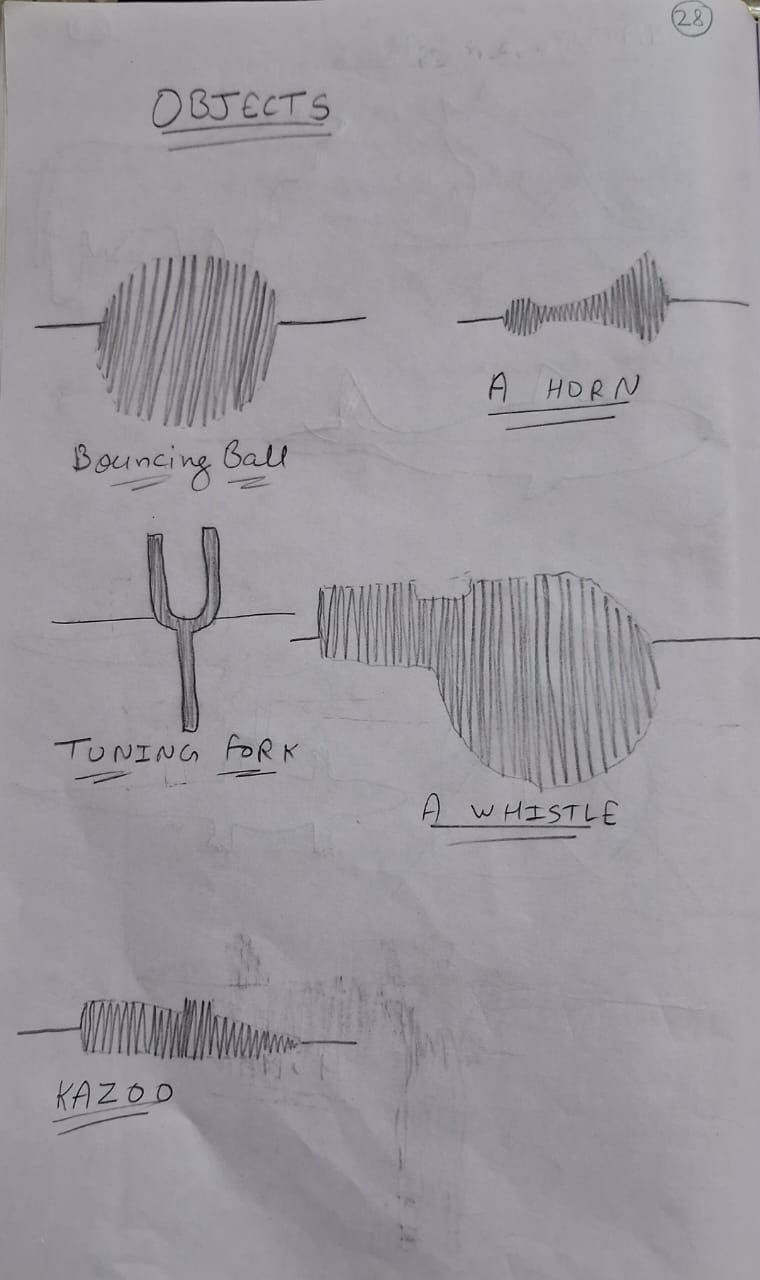 28
OBJECTS
Bouncing Ball
A HORN
TUNING FORK
A WHISTLE
KAZOO